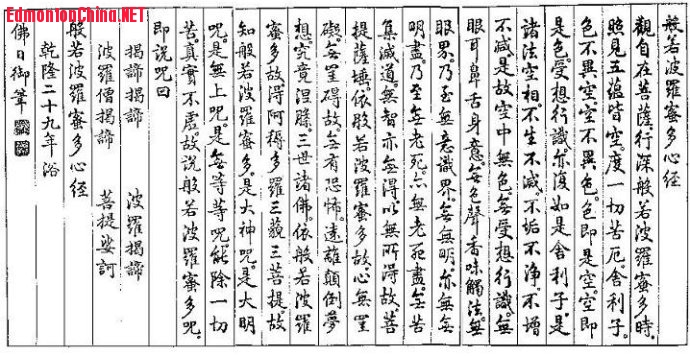 EdmontonChina.NET
般若波羅蜜多心経
觀自在菩薩行深般若波羅蜜多時。
照見五蘊皆空。度一切苦厄。舍利子。
色不異空。空不異色。色即是空。空即
是色。受想行識。亦復如是。舍利子。是
諸法空相。不生不滅。不垢不净。不增
不滅。是故空中無色。無受想行識。無
眼耳鼻舌身意。無色聲香味觸法。無
眼界。乃至無意識界。無無明。亦無無
明盡。乃至無老死。亦無老死盡。無苦
集滅道。無智亦無得。以無所得故。菩
提薩埵。依般若波羅蜜多故。心無罣
礙。無罣碍故。無有恐怖。遠離顛倒夢
想。究竟涅槃。三世諸佛。依般若波羅
蜜多故。得阿耨多羅三藐三菩提。故
知般若波羅蜜多。是大神咒。是大明
咒。是無上咒。是無等等咒。能除一切
苦。真實不虛。故説般若波羅蜜多咒。
即説咒曰
揭諦揭諦 波羅揭諦
波羅僧揭諦 菩提娑訶
般若波羅蜜多心経
乾隆二十九年浴
佛日御筆